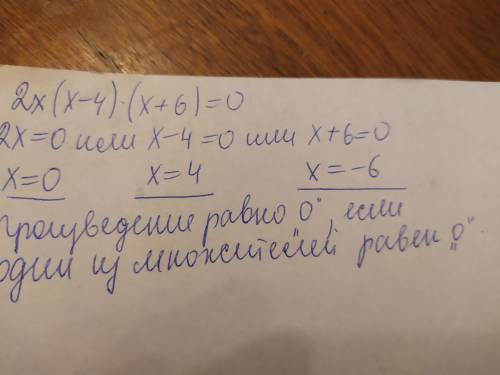 2x(x-4)·(x+6)=0
2x=0 или x-4=0 или x+6=0
x=0 x=4 x=-6
произведение равно „0“, если
один из множителей равен „0“